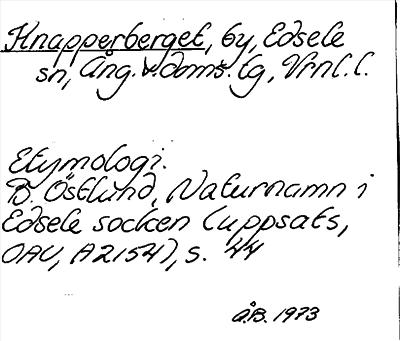 Knapperberget, by, Edsele
sn, Ång. v. doms. tg, Vrnl. l.
Etymologi.
B. Östlund, Naturnamn i
Edsele socken (uppsats,
OAU, A2154), s. 44
Å.B. 1973